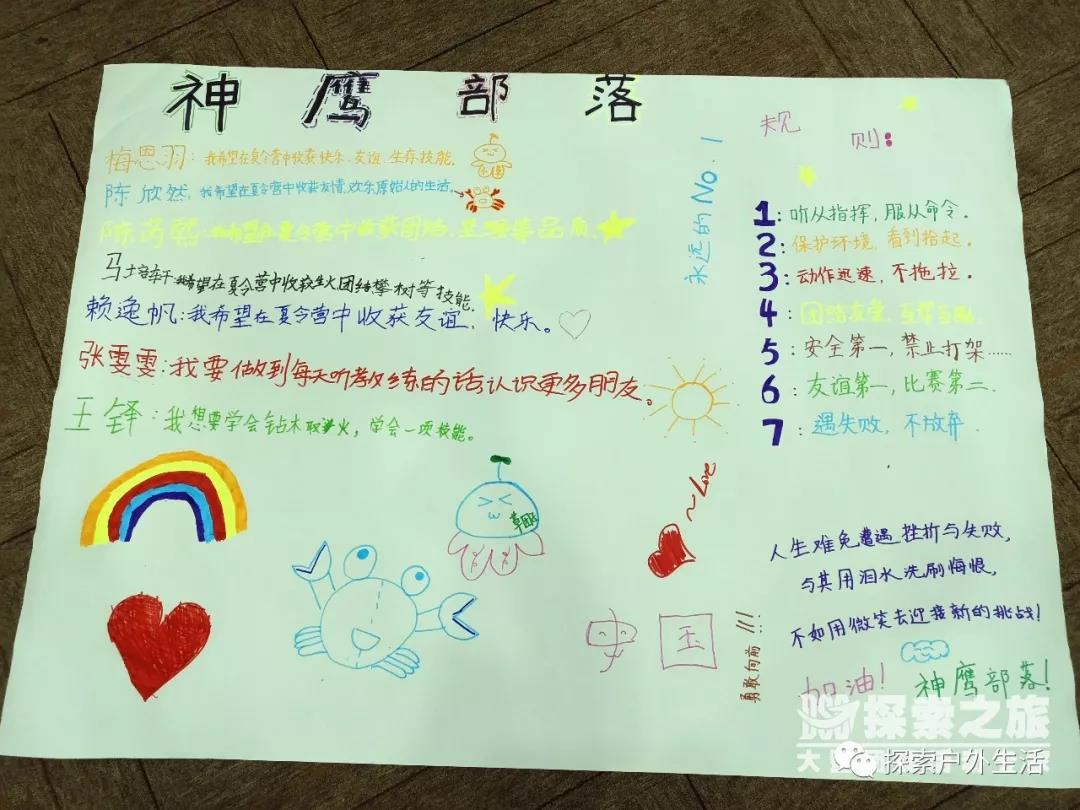 神鹰部落
梅恩羽：我希望在夏令营中收获快乐、友谊、生存技能。
陈欣然，我希望在夏令营中收获友情，欢乐原始人的生活。
陈芮熙：我希望在夏令营中收获团结、坚强等品质。
希望在夏令营中收获生火团结攀树等技能。
赖逸帆：我希望在夏令营中收获友谊、快乐。
张雯雯：我要做到每天听教练的话，认识更多朋友。
王铎：我想要学会钻木取火，学会一项技能。
永远的No.1
规则：
1：听从指挥，服从命令。
2：保护环境，看到拾起。
3：动作迅速，不拖拉。
4：团结友爱，互帮互助。
5：安全第一，禁止打架……
6：友谊第一，比赛第二.
7：遇失败，不放弃.
~Love
中国
勇敢向前!!!
人生难免遭遇挫折与失败，
与其用泪水洗刷悔恨，
不如用微笑去迎接新的挑战！
加油！神鹰部落！
探索之旅
探索户外生活